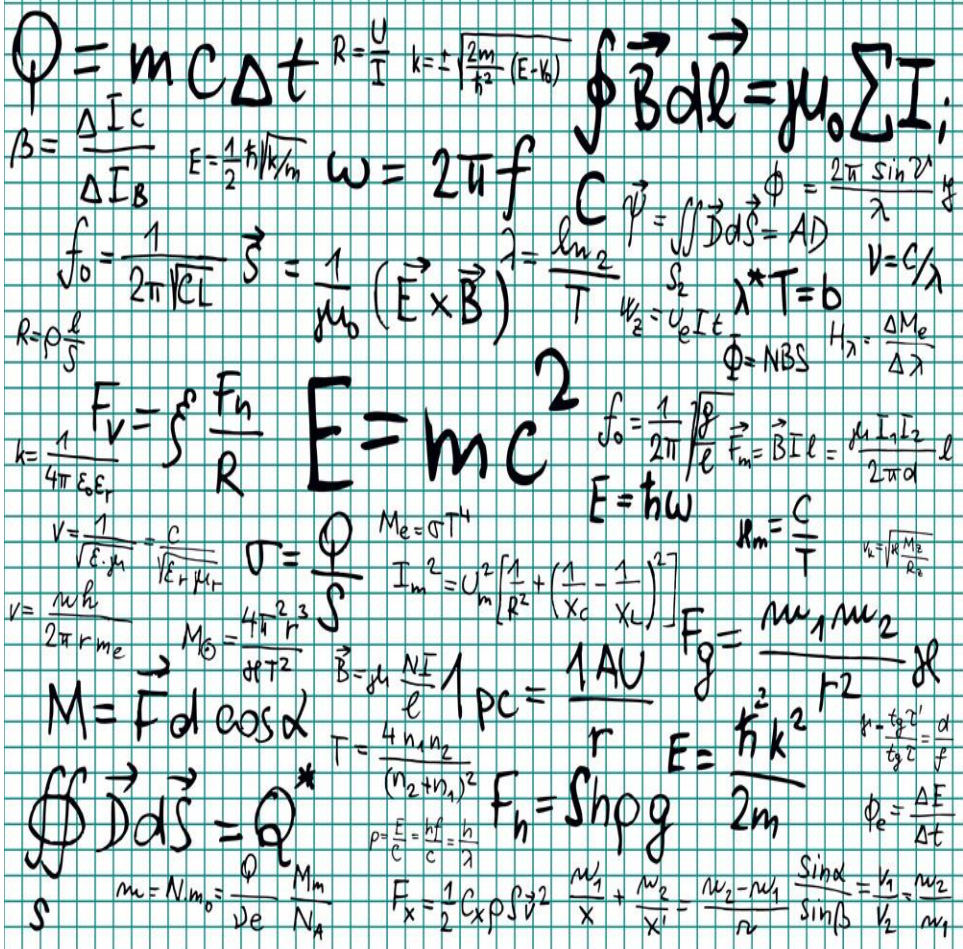 Q = m c Δ t
R = U/I
k = ± √(2m/ħ² (E-V₀))
∮ B⃗ dl⃗ = μ₀ ∑ Iᵢ
β = ΔI_C / ΔI_B
E = 1/2 ħ √(k/m)
ω = 2πf
C
ψ⃗ = ∬ D⃗ dS⃗ = AD
S₂
ϕ = 2π sin ϑ / λ y
f₀ = 1 / 2π√CL
S⃗ = 1/μ₀ (E⃗ × B⃗)
λ = ln 2 / T
ν = C/λ
λ* T = b
W_z = U_e I t
R = ρ l/S
Φ = NBS
H_λ = ΔM_e / Δλ
F_v = ∫ F_n / R
E = mc²
f₀ = 1/2π √(g/l)
F⃗_m = B⃗ I l = μ I₁ I₂ / 2πd l
k = 1 / 4π ε₀ε_r
E = ħω
M_e = σT⁴
v = 1/√(ε·μ) = c/√(ε_r μ_r)
σ = Q/S
I_m² = U_m² [1/R² + (1/X_C - 1/X_L)²]
ϰ_m = C/T
v = nh / 2π r m_e
M_⊙ = 4π² r³ / ϰT²
B⃗ = μ NI/l
1 pc = 1 AU / r
F_g = m₁ m₂ / r² ϰ
M = F⃗ d cos α
T = 4 n₁ n₂ / (n₂+n₁)²
E = ħ² k² / 2m
γ = tg τ' / tg τ = d/f
∯ D⃗ dS⃗ = Q*
S
F_h = Shρg
ϕ_e = ΔE / Δt
p = E/c = hf/c = h/λ
m = N·m₀ = Q/νe M_m/N_A
F_x = 1/2 C_x ρ S v⃗²
n₁/x + n₂/x' = n₂-n₁ / r
Sin α / Sin β = v₁/v₂ = n₂/n₁